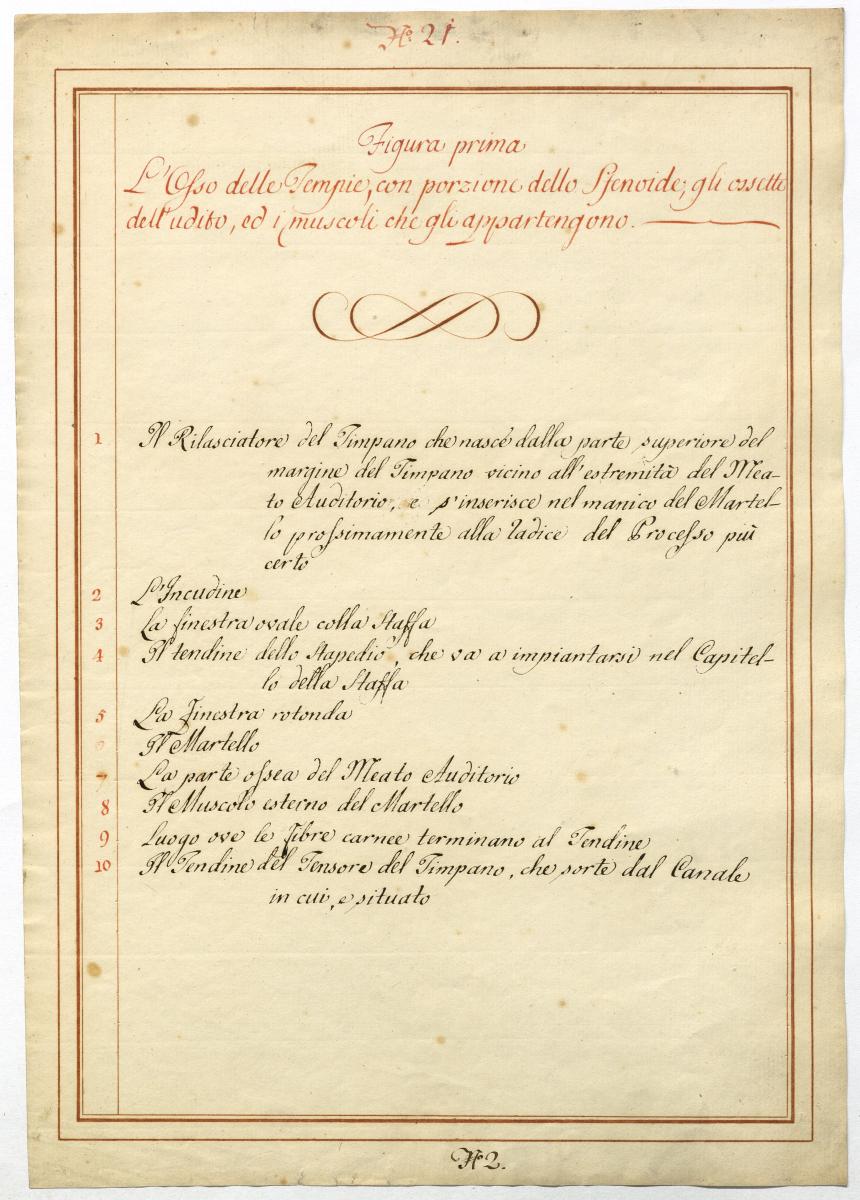 No. 21.
Figura prima
L'Osso delle Tempie, con porzione dello Sfenoide; gli ossetti
dell'udito, ed i muscoli che gli appartengono.
1 Il Rilasciatore del Timpano che nasce dalla parte superiore del
margine del Timpano vicino all'estremità del Mea-
to Auditorio, e s'inserisce nel manico del Martel-
lo prossimamente alla radice del Processo più
certo
2 L'Incudine
3 La finestra ovale colla Staffa
4 Il tendine dello Stapedio, che va a impiantarsi nel Capitel-
lo della Staffa
5 La Finestra rotonda
6 Il Martello
7 La parte ossea del Meato Auditorio
8 Il Muscolo esterno del Martello
9 Luogo ove le Fibre carnee terminano al Tendine
10 Il Tendine del Tensore del Timpano, che sorte dal Canale
in cui, e situato
No 2.